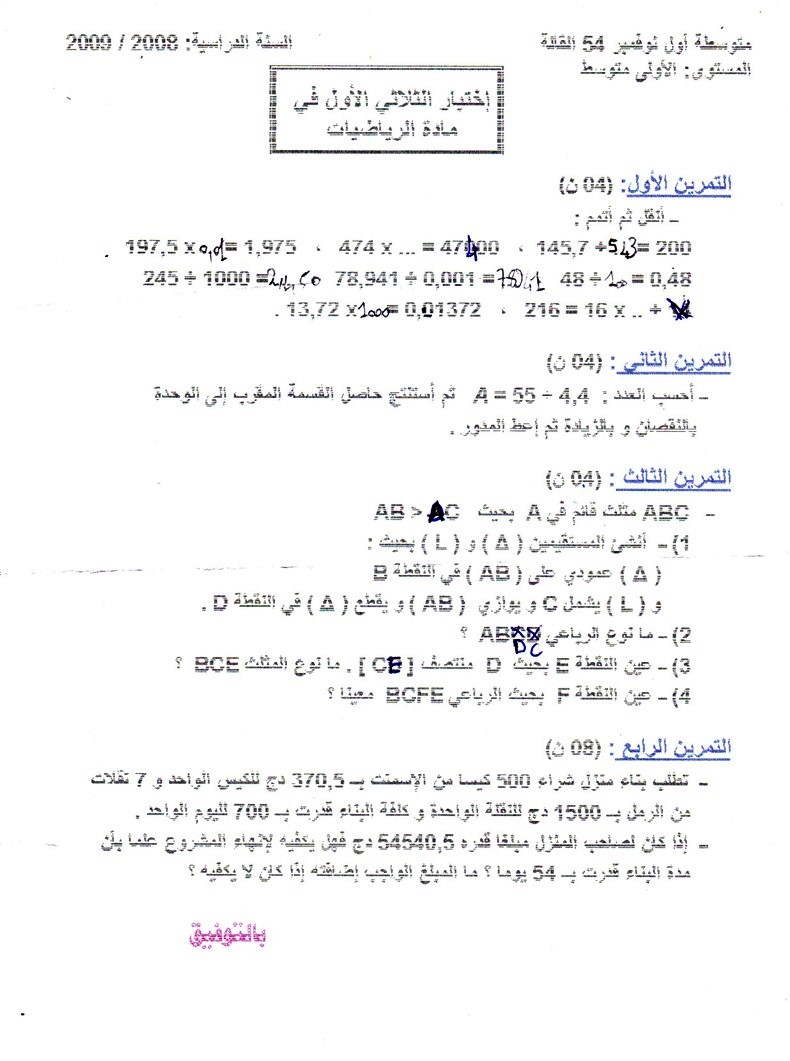 متوسطة أول نوفمبر 54 القالة
السنة الدراسية: 2008 / 2009
المستوى: الأولى متوسط
إختبار الثلاثي الأول في
مادة الرياضيات
التمرين الأول: (04 ن)
– أنقل ثم أتمم :
197,5 x 0,01 = 1,975 ، 474 x ... = 47400 ، 145,7 + 54,3 = 200
245 ÷ 1000 = 78,941 ÷ 0,001 = 48 ÷ 100 = 0,48
13,72 x 1000 = 0,01372 ، 216 = 16 x .. +
التمرين الثاني : (04 ن)
– أحسب العدد : A = 55 ÷ 4,4 ثم أستنتج حاصل القسمة المقرب إلى الوحدة
بالنقصان و بالزيادة ثم إعط المدور .
التمرين الثالث : (04 ن)
- ABC مثلث قائم في A بحيث AB > AC
1)- أنشئ المستقيمين ( Δ ) و ( L ) بحيث :
( Δ ) عمودي على ( AB ) في النقطة B
و ( L ) يشمل C و يوازي ( AB ) و يقطع ( Δ ) في النقطة D .
2)- ما نوع الرباعي ABDC ؟
3)- عين النقطة E بحيث D منتصف [ CE ] . ما نوع المثلث BCE ؟
4)- عين النقطة F بحيث الرباعي BCFE معينا ؟
التمرين الرابع : (08 ن)
- تطلب بناء منزل شراء 500 كيسا من الإسمنت بـ 370,5 دج للكيس الواحد و 7 نقلات
من الرمل بـ 1500 دج للنقلة الواحدة و كلفة البناء قدرت بـ 700 لليوم الواحد .
- إذا كان لصاحب المنزل مبلغا قدره 54540,5 دج فهل يكفيه لإنهاء المشروع علما بأن
مدة البناء قدرت بـ 54 يوما ؟ ما المبلغ الواجب إضافته إذا كان لا يكفيه ؟
بالتوفيق